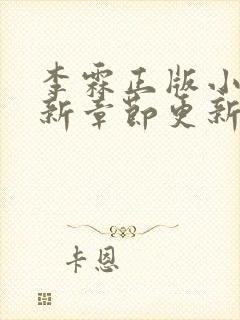 李霖正版小
新章节更新
卡恩